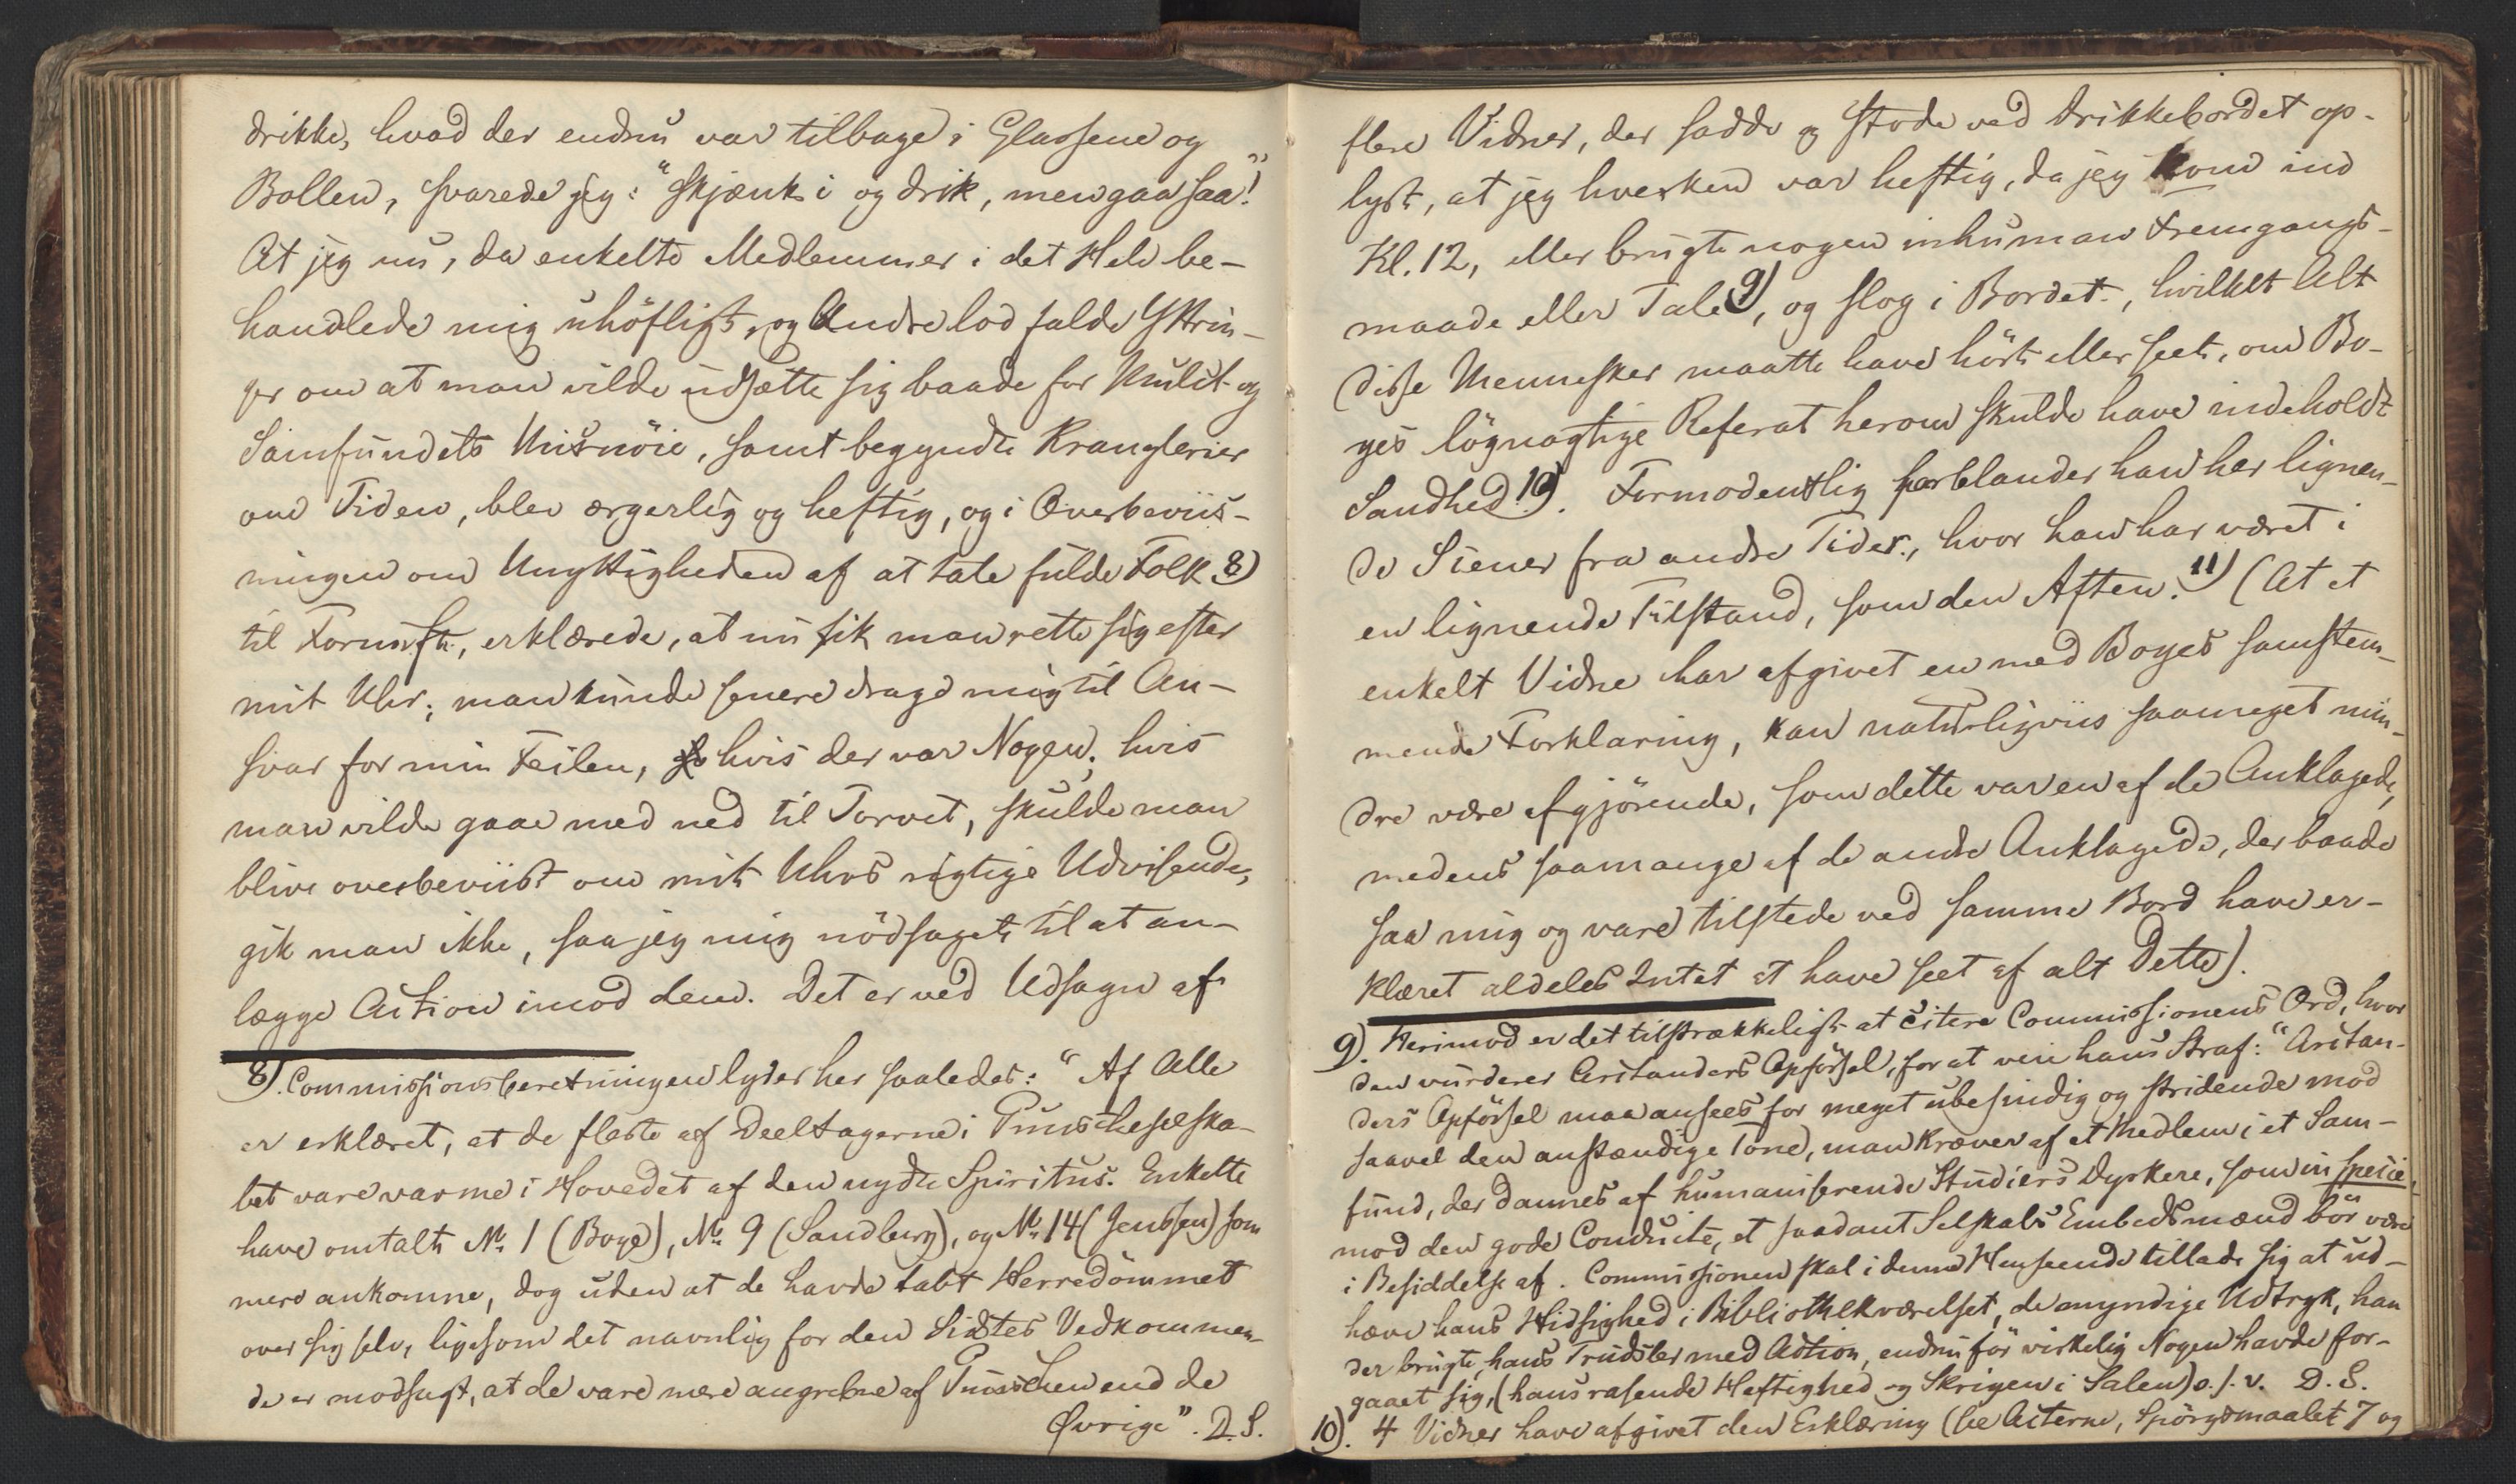 drikke, hvad der endnu var tilbage i Glassene og
Bollen, svarede jeg: "skjænk i og drik, men gaa saa!"
At jeg nu, da enkelte Medlemmer i det Hele be-
handlede mig uhöfligt, og Andre lod falde Yttrin-
ger om at man vilde udsætte sig baade for Mulct og
Samfundets Misnöie, samt begyndte Kranglerier
om Tiden, blev ærgerlig og heftig, og i Overbeviis-
ningen om Unyttigheden af at tale fulde Folk 8)
til Fornuft, erklærede, at nu fik man rette sig efter
mit Uhr; man kunde senere drage mig til An-
svar for min Feilen, hvis der var Nogen; hvis
man vilde gaae med ned til Torvet, skulde man
blive overbeviist om mit Uhrs rigtige Udvisende,
gik man ikke, saa jeg mig nödsaget til at an-
lægge Action imod dem. Det er ved Udsagn af
8). Commissionsberetningen lyder her saaledes: "Af Alle
er erklæret, at de fleste af Deeltagerne i Punscheselska-
bet vare varme i Hovedet af den nydte Spiritus. Enkelte
have omtalt No 1 (Boye), No 9 (Sandberg), og No 14 (Jenssen) som
mere ankomne, dog uden at de havde tabt Herredömmet
over sig selv, ligesom det navnlig for den Sidstes Vedkommen-
de er modsagt, at de vare mere angrebne af Punschen end de
Øvrige". D. S.
flere Vidner, der sadde og stode ved Drikkebordet op-
lyst, at jeg hverken var heftig, da jeg kom ind
Kl. 12, eller brugte nogen inhuman Fremgangs-
maade eller Tale 9), og slog i Bordet, hvilket Alt
disse Mennesker maatte have hört eller seet, om Bo-
yes lögnagtige Referat herom skulde have indeholdt
Sandhed 10). Formodentlig forblander han her lignen-
de Scener fra andre Tider, hvor han har været i
en lignende Tilstand, som den Aften. 11) (At et
enkelt Vidne har afgivet en med Boyes samstem-
mende Forklaring, kan naturligviis saameget min-
dre være afgjörende, som dette var en af de Anklagede,
medens saamange af de andre Anklagede, der baade
saa mig og vare tilstede ved samme Bord have er-
klæret aldeles Intet at have seet af alt Dette).
9). Herimod er det tilstrækkeligt at citere Commissionens Ord, hvor
den vurderer Arctanders Opförsel, for at veie hans Straf: "Arctan-
ders Opförsel maa ansees for meget ubesindig og stridende mod
saavel den anstændige Tone, man kræver af et Medlem i et Sam-
fund, der dannes af humaniserende Studiers Dyrkere, som in specie
mod den gode Conduite, et saadant Selskabs Embedsmænd bör være
i Besiddelse af. Commissionen skal i denne Henseende tillade sig at ud-
hæve hans Hidsighed i Bibliothekværelset, de myndige Udtryk, han
der brugte, hans Trudsler med Action, endnu för virkelig Nogen havde for-
gaaet sig, (hans rasende Heftighed og Skrigen i Salen) o. s. v. D. S.
10). 4 Vidner have afgivet den Erklæring (see Acterne, Spörgsmaalet 7 og